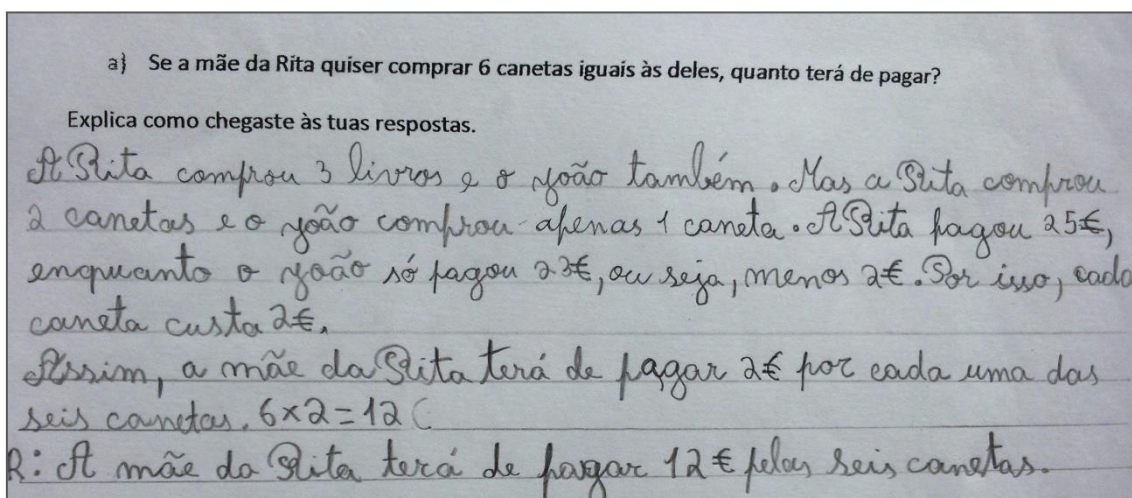 a) Se a mãe da Rita quiser comprar 6 canetas iguais às deles, quanto terá de pagar?
Explica como chegaste às tuas respostas.
A Rita comprou 3 livros e o João também. Mas a Rita comprou
2 canetas e o João comprou apenas 1 caneta. A Rita pagou 25€,
enquanto o João só pagou 23€, ou seja, menos 2€. Por isso, cada
caneta custa 2€.
Assim, a mãe da Rita terá de pagar 2€ por cada uma das
seis canetas. 6×2=12 (
R: A mãe da Rita terá de pagar 12€ pelas seis canetas.